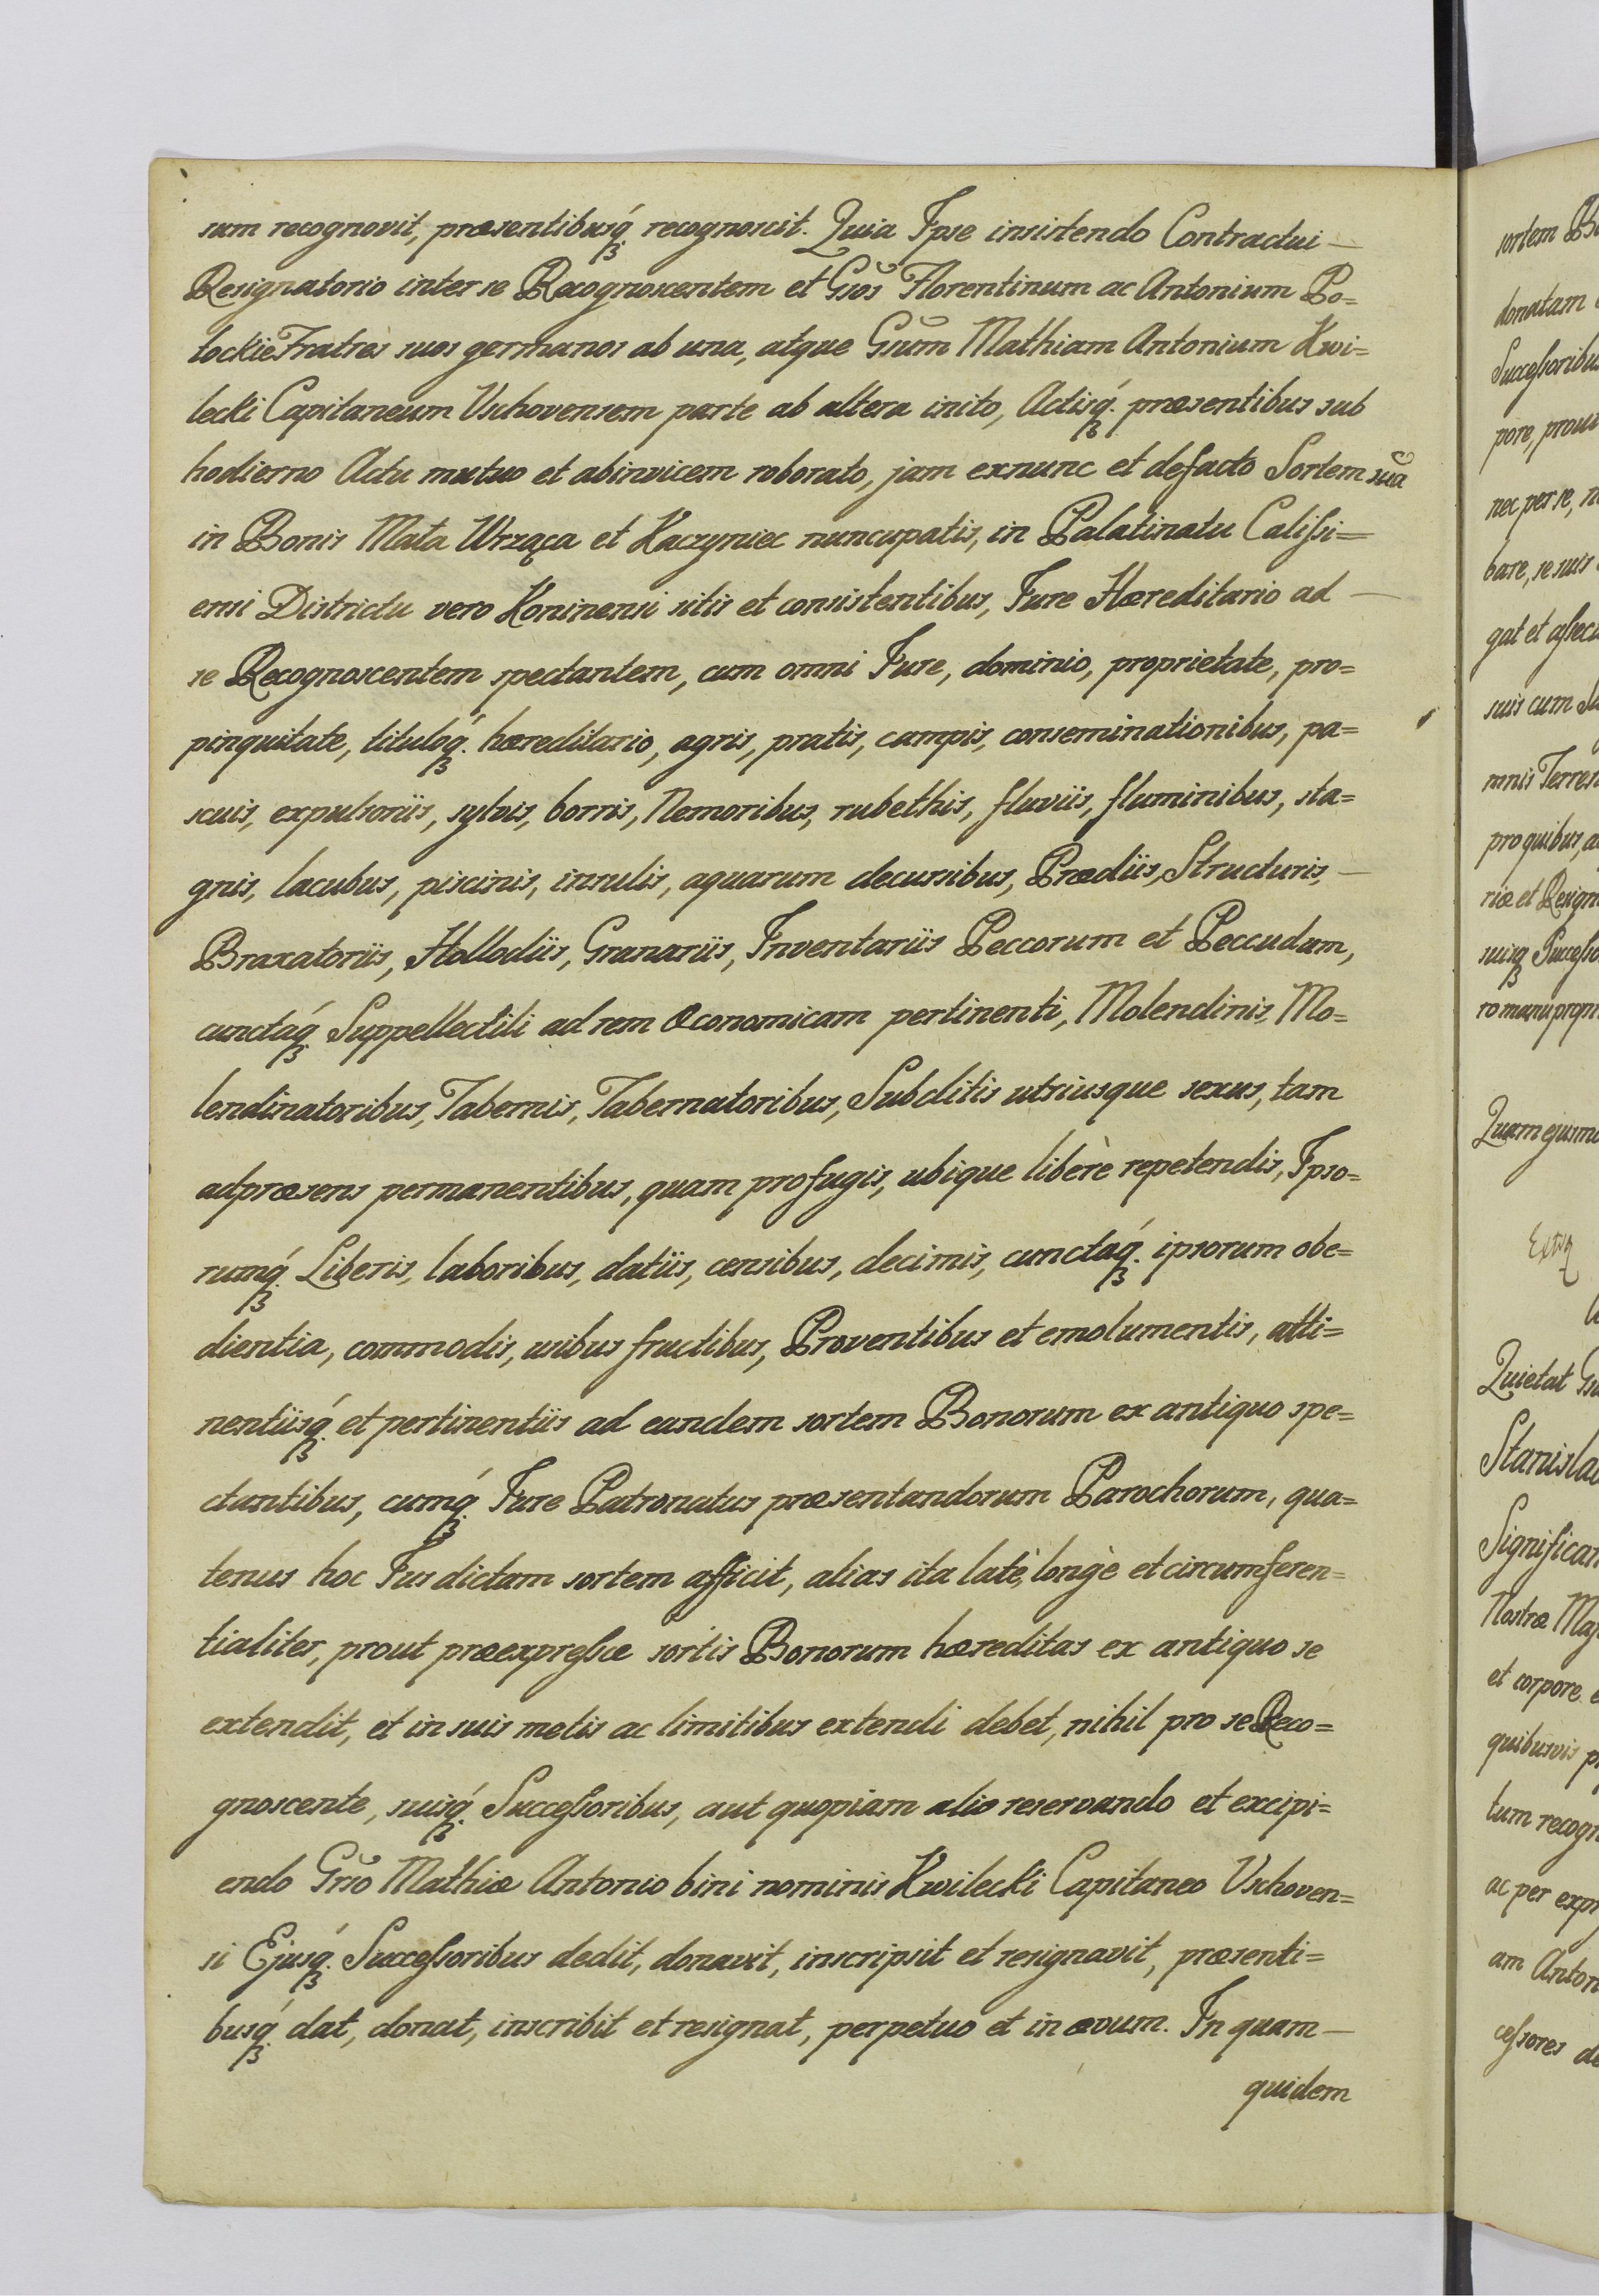 sum recognovit, præsentibusq́ꝫ recognoscit. Quia Ipse insistendo Contractui —
Resignatorio inter se Recognoscentem et Gsos Florentinum ac Antonium Po=
tockie Fratres suos germanos ab una, atque Gsum Mathiam Antonium Kwi=
lecki Capitaneum Vschovensem parte ab altera inito, Actisq́ꝫ præsentibus sub
hodierno Actu mutuo et abinvicem roborato, jam exnunc et defacto Sortem sua
in Bonis Mała Wrząca et Kaczyniec nuncupatis, in Palatinatu Calissi=
ensi Districtu vero Koninensi sitis et consistentibus, Jure Hæreditario ad —
se Recognoscentem spectantem, cum omni Jure, dominio, proprietate, pro=
pinquitate, tituloq́ꝫ hæreditario, agris, pratis, campis, conseminationibus, pa=
scuis, expulsoriis, sylvis, borris, Nemoribus, rubethis, fluviis, fluminibus, sta=
gnis, lacubus, piscinis, insulis, aquarum decursibus, Prædiis, Structuris, —
Braxatoriis, Hallodiis, Granariis, Inventariis Peccorum et Peccudum,
cunctaq́ꝫ Suppellectili ad rem Œconomicam pertinenti, Molendinis, Mo=
lendinatoribus, Tabernis, Tabernatoribus, Subditis utriusque sexus, tam
adpræsens permanentibus, quam profugis, ubique liberè repetendis, Ipso=
rumq́ꝫ Liberis, laboribus, datiis, censibus, decimis, cunctaq́ꝫ ipsorum obe=
dientia, commodis, usibus fructibus, Proventibus et emolumentis, atti=
nentiisq́ꝫ et pertinentiis ad eandem sortem Bonorum ex antiquo spe=
ctantibus, cumq́ꝫ Jure Patronatus præsentandorum Parochorum, qua=
tenus hoc Jus dictam sortem afficit, alias ita latè, longè et circumferen=
tialiter, prout præexpressæ sortis Bonorum hæreditas ex antiquo se
extendit, et in suis metis ac limitibus extendi debet, nihil pro se Reco=
gnoscente, suisq́ꝫ Successoribus, aut quopiam alio reservando et excipi=
endo Gso Mathiæ Antonio bini nominis Kwilecki Capitaneo Vschoven=
si Ejusq́ꝫ Successoribus dedit, donavit, inscripsit et resignavit, præsenti=
busq́ꝫ dat, donat, inscribit et resignat, perpetuo et in ævum. In quam —
quidem
sortem
donatam
Successoribus
pore, prout
nec per se,
bare, se suis
gat et
suis cum
mnis
pro quibus,
riæ et
suisqꝫ
Quam
Quietat
Stanisla
Significan
Nostræ Maj
et corpore
quibusvis
tum recogn
ac per expr
am Anton
cessores